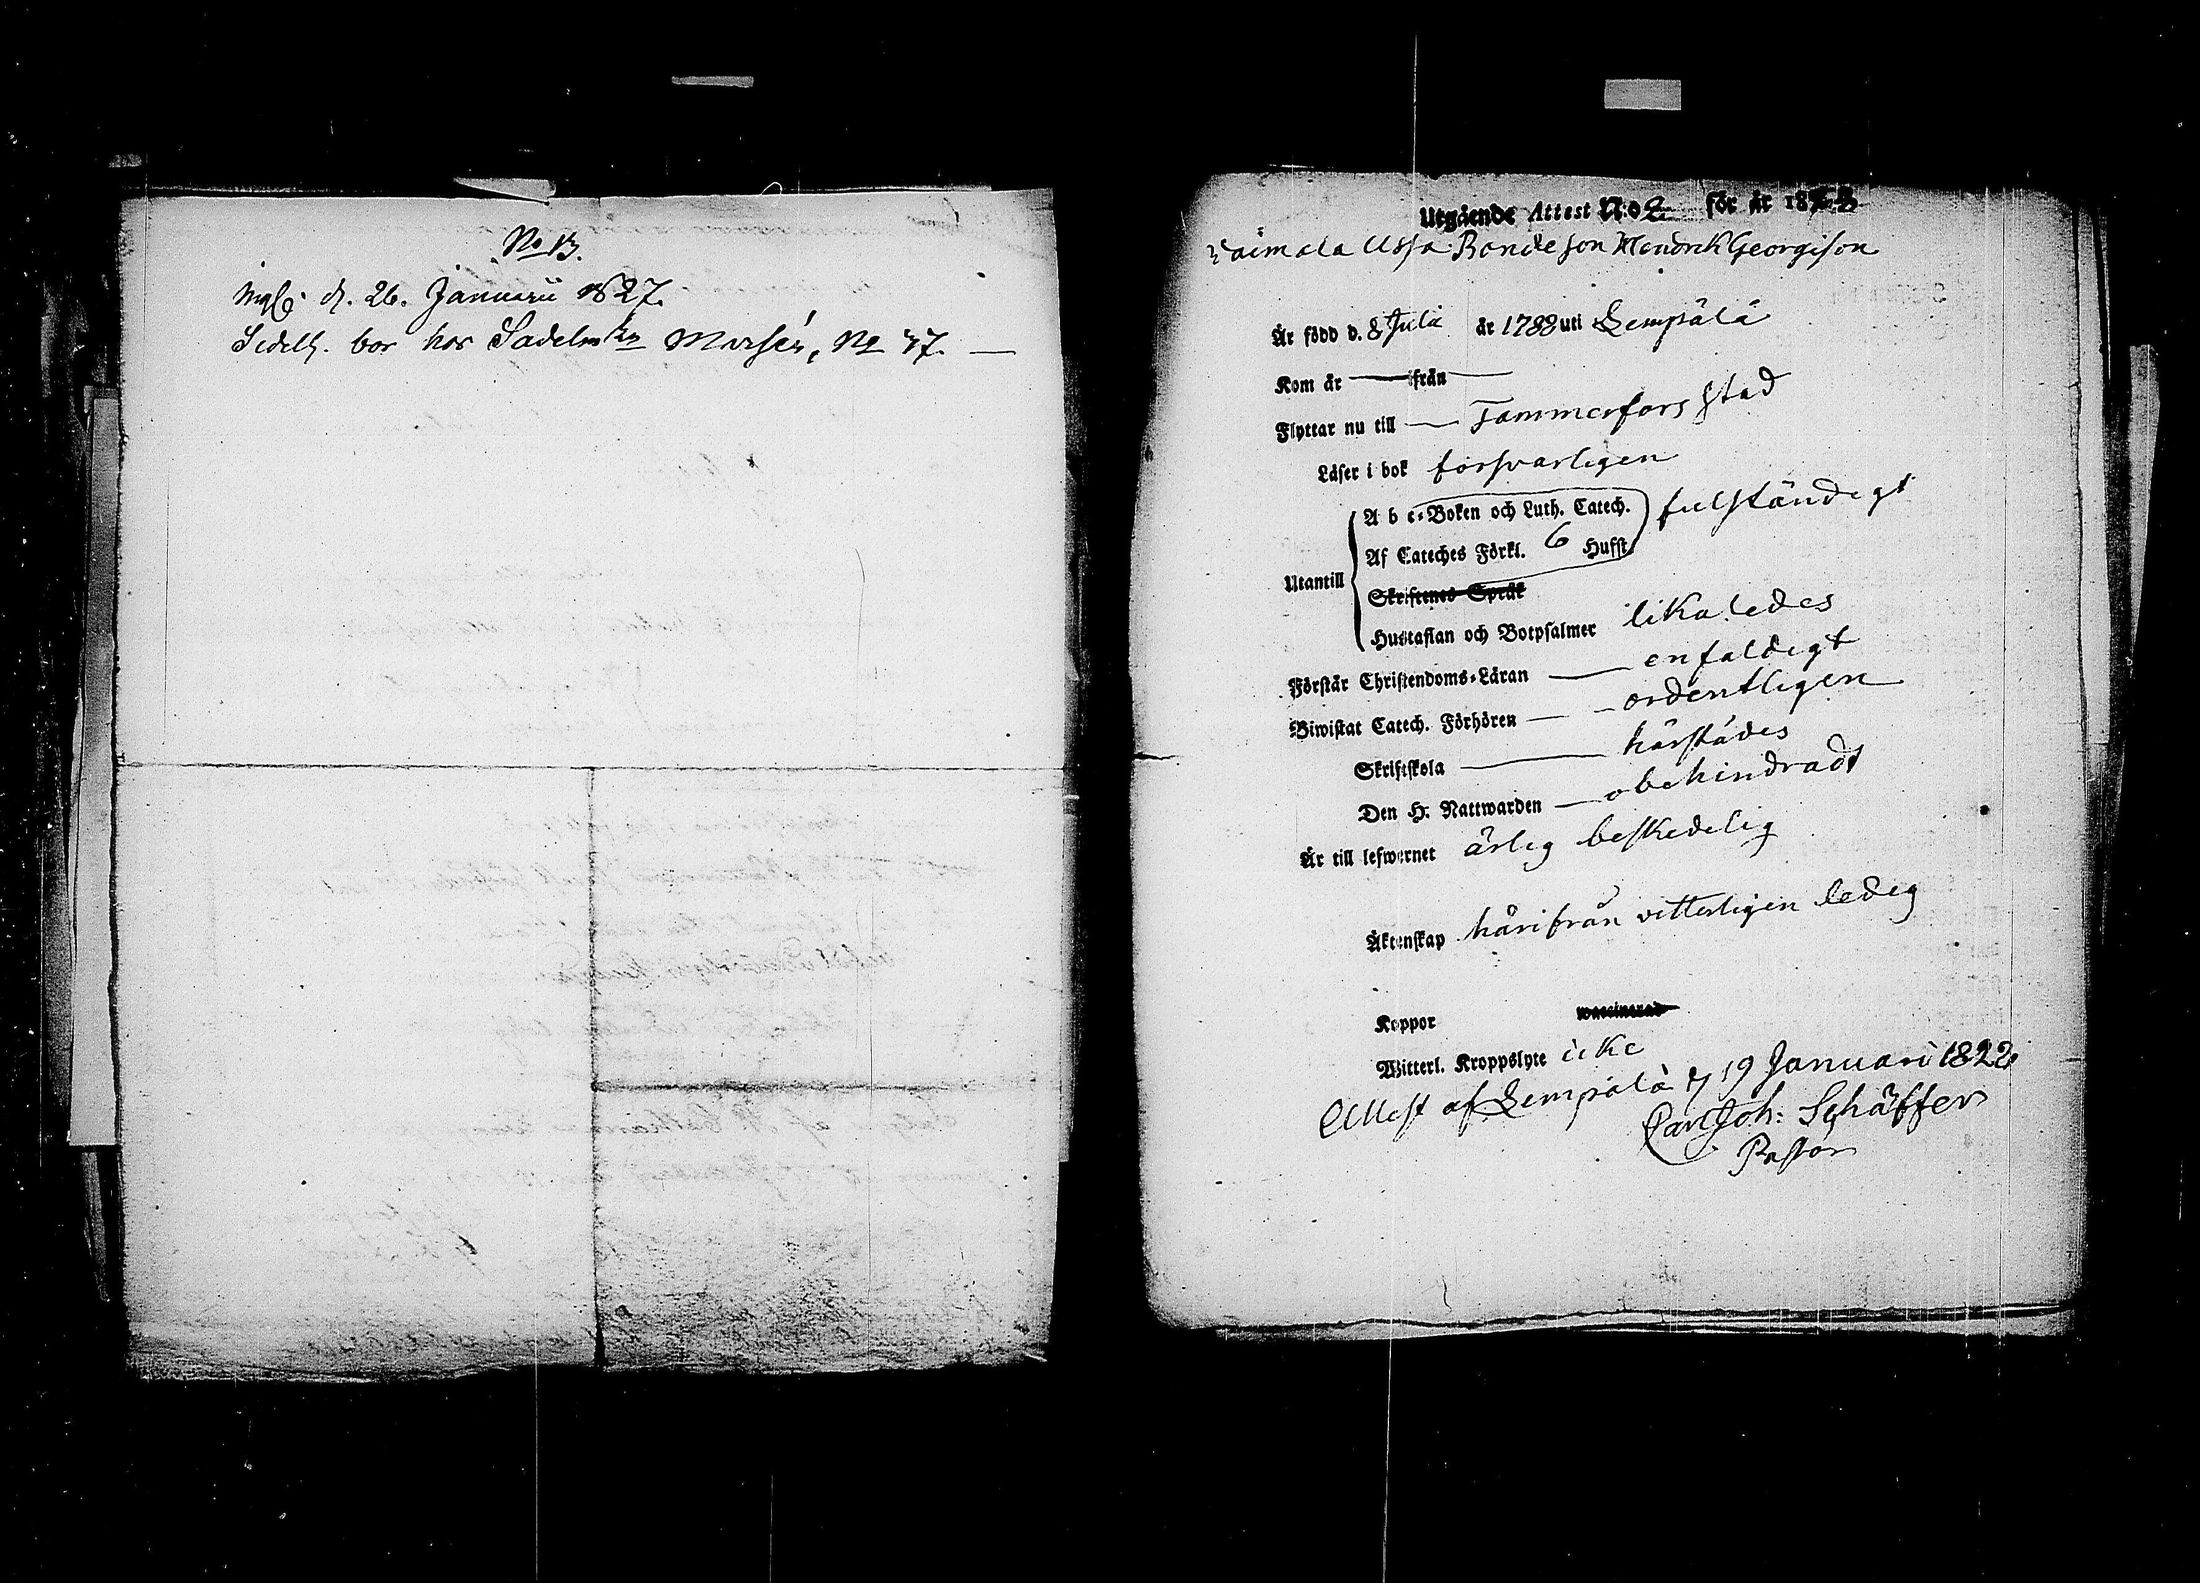 No 13.
d. 26. Januarii 1827.
Sedelh. bor hos Sadelmkn No 47.
Utgående Attest No 2 för år 18
Bondeson Hendrik Georgison
Är född d. 8 Julii år 1788 uti Lempälä
Kom år — ifrån —
Flyttar nu till — Tammerfors Stad
Läser i bok försvarligen
A b c-Boken och Luth. Catech. fulständigt
Af Cateches Förkl. 6 Hufst.
Utantill
Skriftenes Språk
Hustaflan och Botpsalmer likaledes
Förstår Christendoms-Läran — enfaldigt
Biwistat Catech. Förhören — ordentligen
Skriftskola — härstädes
Den H. Nattwarden — obehindradt
Är till lefwernet ärlig beskedelig
Äktenskap härifrån vitterligen ledig
Koppor waccinerad
Witterl. Kroppslyte icke
Attest af Lempälä d 19 Januari 1822
Carl Joh: Schäffer
Pastor